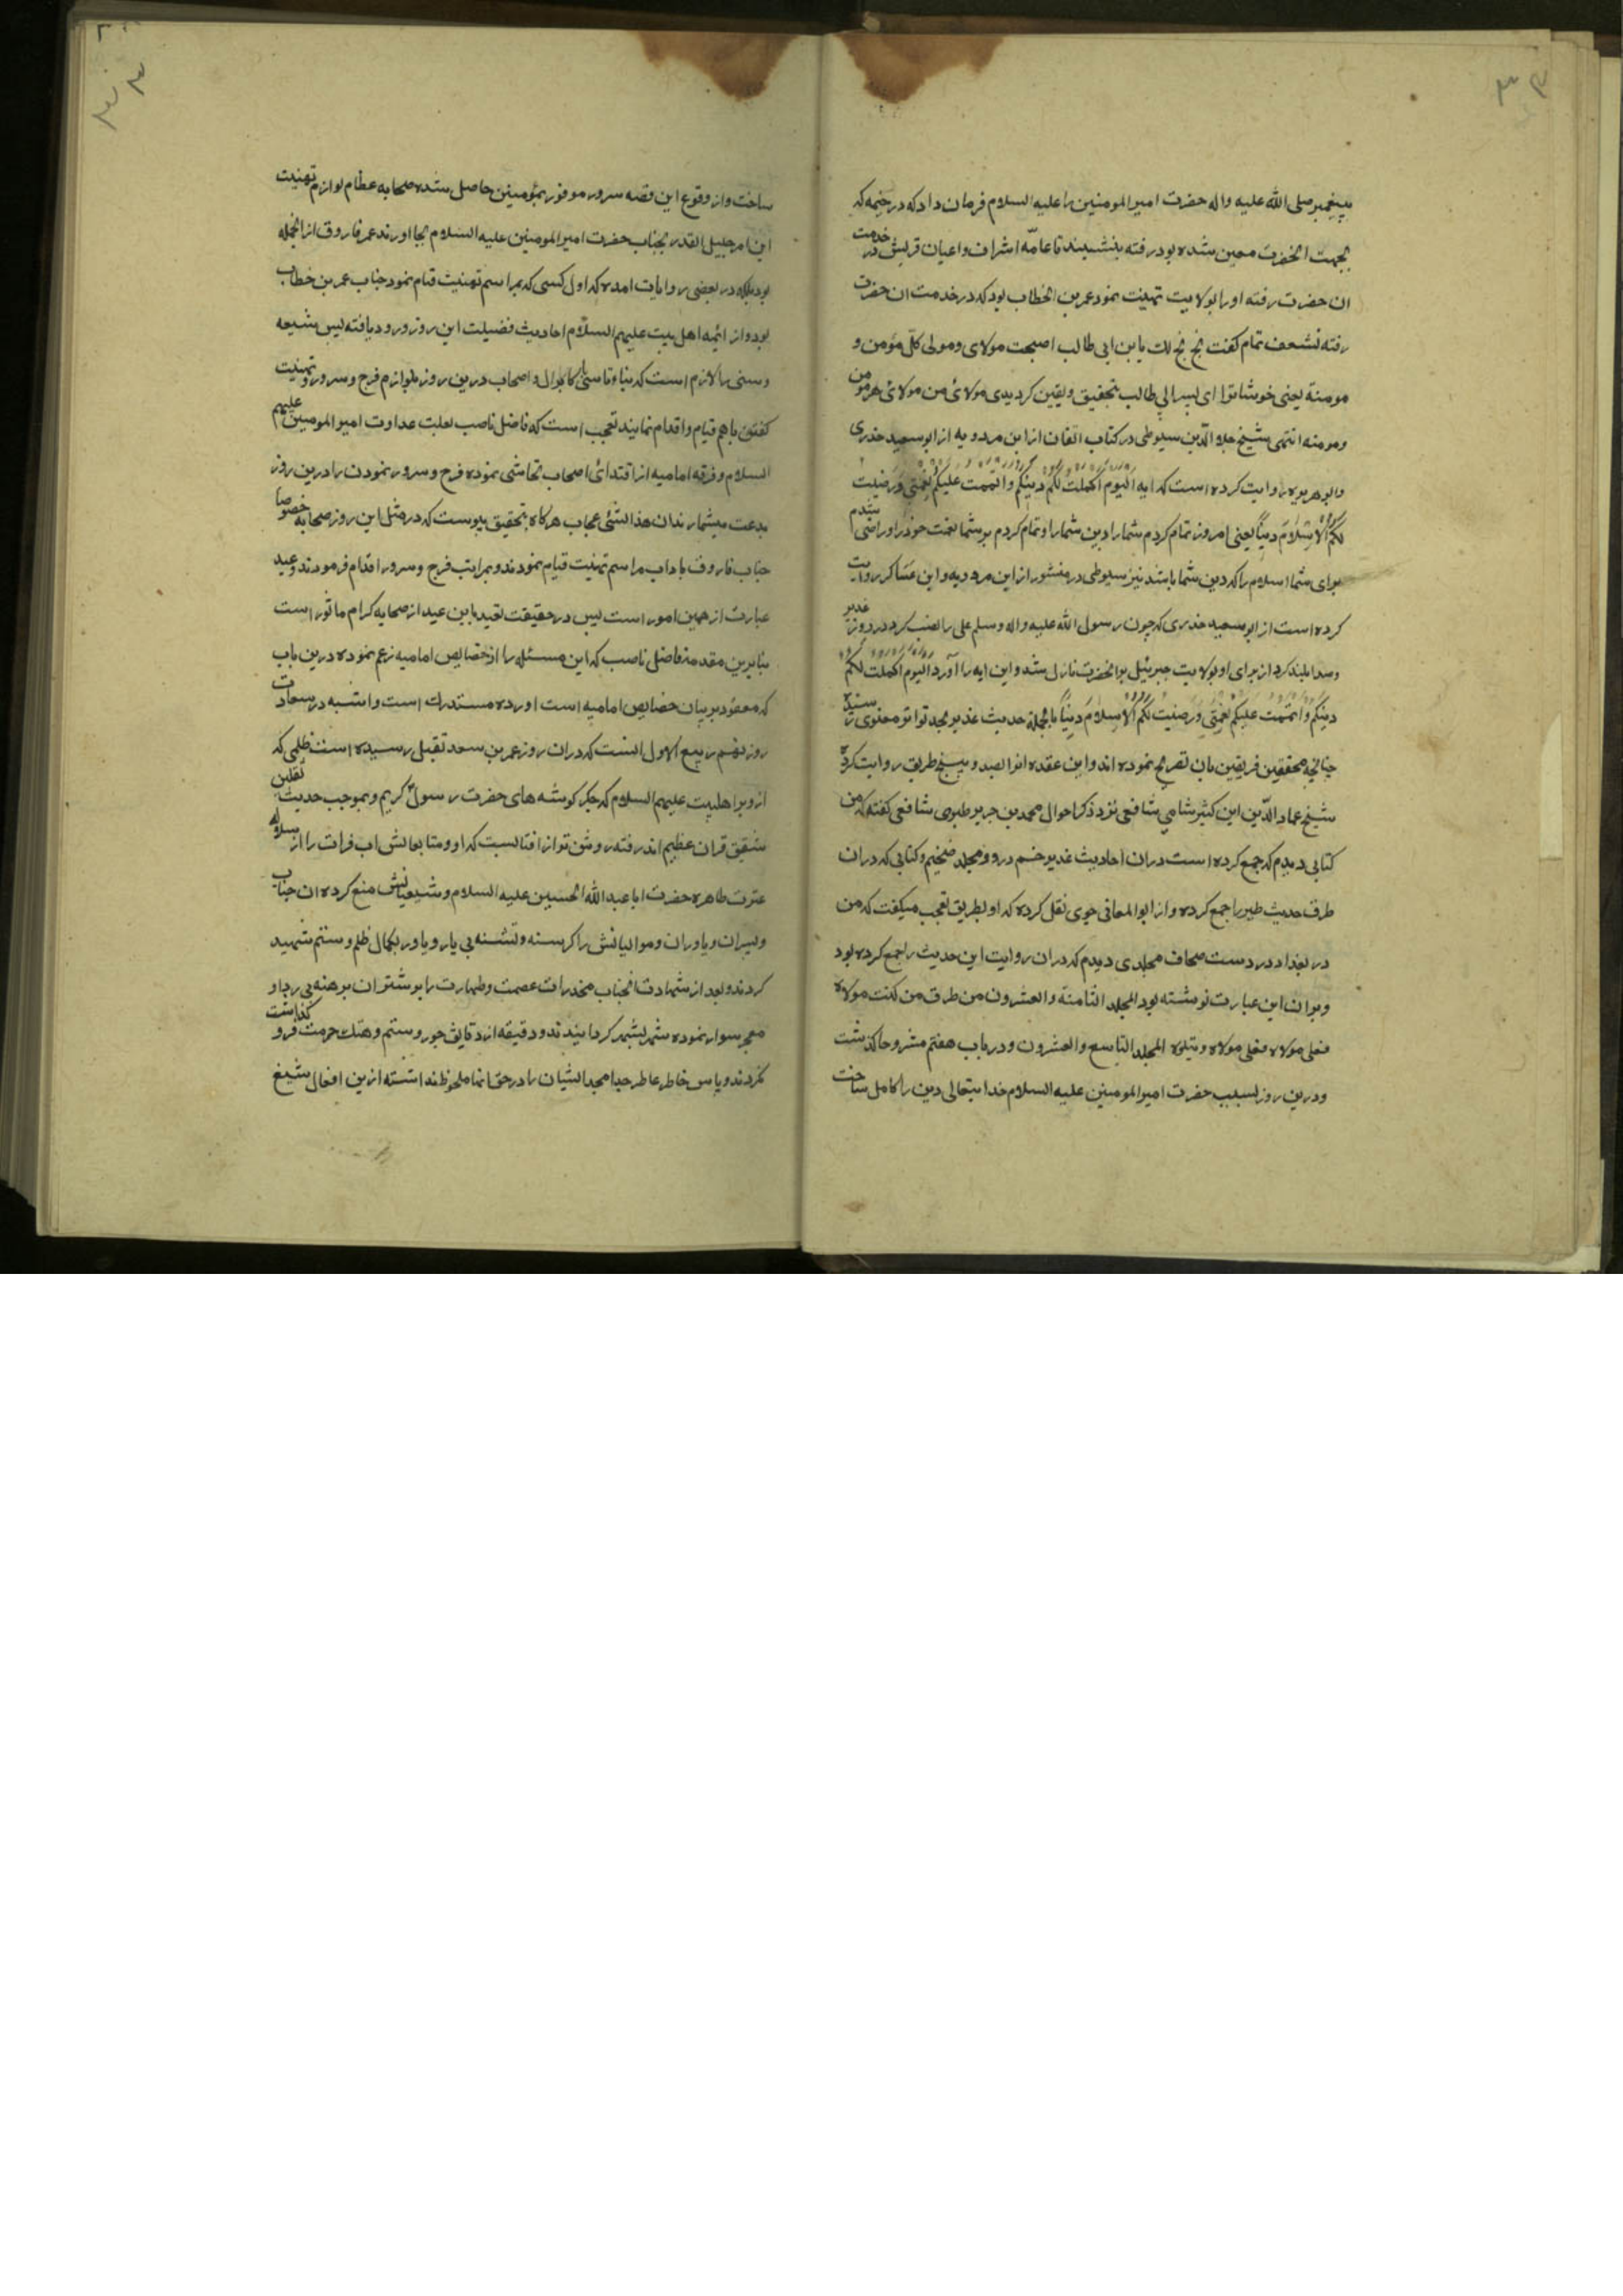 پیغمبر صلی الله علیه واله حضرت امیر المومنین را علیه السلام فرمان داد که در خیمه که
بجهت انحضرت معین شده بود رفته بنشیند تا عامّه اشراف و اعیان قریش در خدمت
ان حضرت رفته او را بولایت تهنیت نمود عمر بن الخطاب بود که در خدمت ان حضرت
رفته بشعف تمام کفت بخ بخ لك یا بن ابی طالب اصبحت مولای ومولی کل مؤمن و
مومنة یعنی خوشا ترا ای پسر ابی طالب بتحقیق ویقین کردیدی مولائ من مولائ هر مومن
ومومنه انتهی شیخ جلال الدّین سیوطی در کتاب اتقان از ابن مردویه از ابو سعید خدری
وابو هریره روایت کرده است که ایه الیوم اکملت لکم دینکم واتممت علیکم نعمتی ورضیت
لکم الاسلام دینًا یعنی امروز تمام کردم شما را دین شما را وتمام کردم بر شما نعمت خود را وراضی شدم
برای شما اسلام را که دین شما باشد نیز سیوطی در منثور از ابن مردویه وابن عساکر روایت
کرده است از ابو سعید خدری که چون رسول الله علیه واله وسلم علی را نصب کرد در روز غدیر
وصدا بلند کرد از برای او بولایت جبرئیل بر انحضرت نازل شد واین ایه را آورد الیوم اکملت لکم
دینکم واتممت علیکم نعمتی ورضیت لکم الاسلام دینًا بالجملة حدیث غدیر بحد تواتر معنوی رسیده
چنانچه محققین فریقین بان تصریح نموده اند وابن عقده انرا بصد و پنج طریق روایت کرده
شیخ عماد الدّین ابن کثیر شامی شافعی نزد ذکر احوال محمد بن جریر طبری شافعی کفته که من
کتابی دیدم که جمع کرده است دران احادیث غدیر خم در دو مجلد ضخیم وکتابی که دران
طرق حدیث طیر را جمع کرده واز ابو المعالی جوی نقل کرده که او بطریق تعجب میکفت که من
در بغداد در دست صحاف مجلدی دیدم که دران روایت این حدیث را جمع کرده بود
وبران این عبارت نوشته بود المجلد الثامنة والعشرون من طرق من کنت مولاه
فعلی مولاه فعلی مولاه ویتلوه المجلد التاسع والعشرون ودر باب هفتم مشروحا کذشت
ودرین روز بسبب حضرت امیر المومنین علیه السلام خدایتعالی دین را کامل ساخت
ساخت واز وقوع این قصه سرور موفور بمؤمنین حاصل شده صحابه عظام لوازم تهنیت
این امر جلیل القدر بجناب حضرت امیر المومنین علیه السلام بجا اوردند عمر فاروق از انجمله
بود بلکه در بعضی روایات امده که اول کسی که بمراسم تهنیت قیام نمود جناب عمر بن خطاب
بود واز ائمه اهل بیت علیهم السلام احادیث فضیلت این روز ورود یافته پس شیعه
وسنی را لازم است که بناء وتاسی بال واصحاب درین روز بلوازم فرح وسرور وتهنیت
کفتن باهم قیام واقدام نمایند تعجب است که فاضل ناصب بعلت عداوت امیر المومنین علیهم
السلام وفرقه امامیه از اقتدائ اصحاب تحاشی نموده فرح وسرور نمودن را درین روز
بدعت میشمارند ان هذا لشئ عجاب هرکاه بتحقیق پیوست که در مثل این روز صحابه خصوصا
جناب فاروق باداب مراسم تهنیت قیام نمودند وبمراتب فرح وسرور اقدام فرمودند وعید
عبارت از همین امور است پس در حقیقت تعید باین عید از صحابه کرام ماثور است
بنابرین مقدمه فاضل ناصب که این مسئله را از خصایص امامیه زعم نموده درین باب
که معقود بر بیان خصایص امامیه است اورده مستدرك است وانتسبه در سعادت
روز نهم ربیع الاول انست که دران روز عمر بن سعد بقتل رسیده است ظلمی که
ازو بر اهلبیت علیهم السلام که جکر کوشه های حضرت رسول کریم وبموجب حدیث ثقلین
شقیق قران عظیم اند رفته روشن تر از افتابست که او ومتابعانش اب فرات را از سلاله
عترت طاهره حضرت ابا عبد الله الحسین علیه السلام وشیعیانش منع کرده ان جناب
وپسران ویاوران وموالیانش را کرسنه وتشنه بی یار ویاور بکمال ظلم وستم شهید
کردند وبعد از شهادت انجناب مخدرات عصمت وطهارت را بر شتران برهنه بی ردا و
معجر سوار نموده شهر بشهر کردانیدند ودقیقه از دقایق جور وستم وهتك حرمت فرو کذاشت
نکردند وپاس خاطر عاطر جد امجد ایشان را در حق انها ملحوظ نداشته ازین افعال شنیع